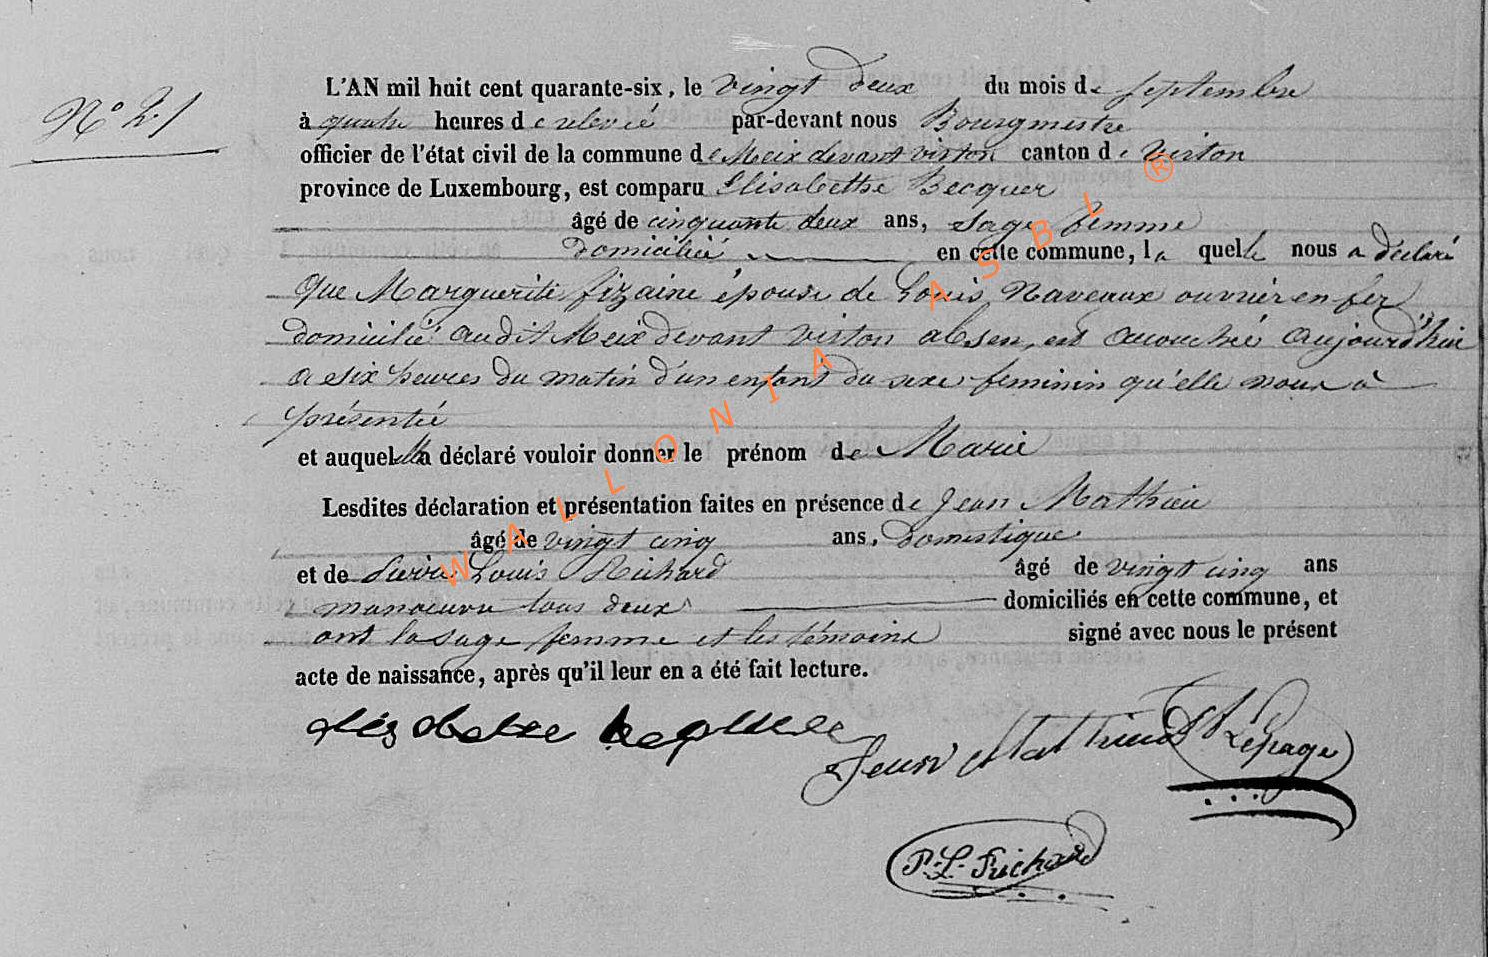 N° 21
L'AN mil huit cent quarante-six, le vingt deux du mois de septembre
à quatre heures de relevé par-devant nous Bourgmestre
officier de l'état civil de la commune de Meix devant virton canton de virton
province de Luxembourg, est comparu Elisabethe Becquer
âgé de cinquante deux ans, sage femme
domicilié en cette commune, la quelle nous a déclaré
que Marguerite fizaine épouse de Louis Naveaux ouvrier en fer
domicilié audit Meix devant virton absen, est acouchée aujourd'hui
a six heures du matin d'un enfant du sexe feminin qu'elle nous a
présenté
et auquel elle a déclaré vouloir donner le prénom de Marie
Lesdites déclaration et présentation faites en présence de Jean Mathieu
âgé de vingt cinq ans, domestique
et de Pierre Louis Richard âgé de vingt cinq ans
manoeuvre tous deux domiciliés en cette commune, et
ont la sage femme et les témoins signé avec nous le présent
acte de naissance, après qu'il leur en a été fait lecture.
Jean Mathieu
Lepage
P. L. Richard
WALLONIA ASBL ®